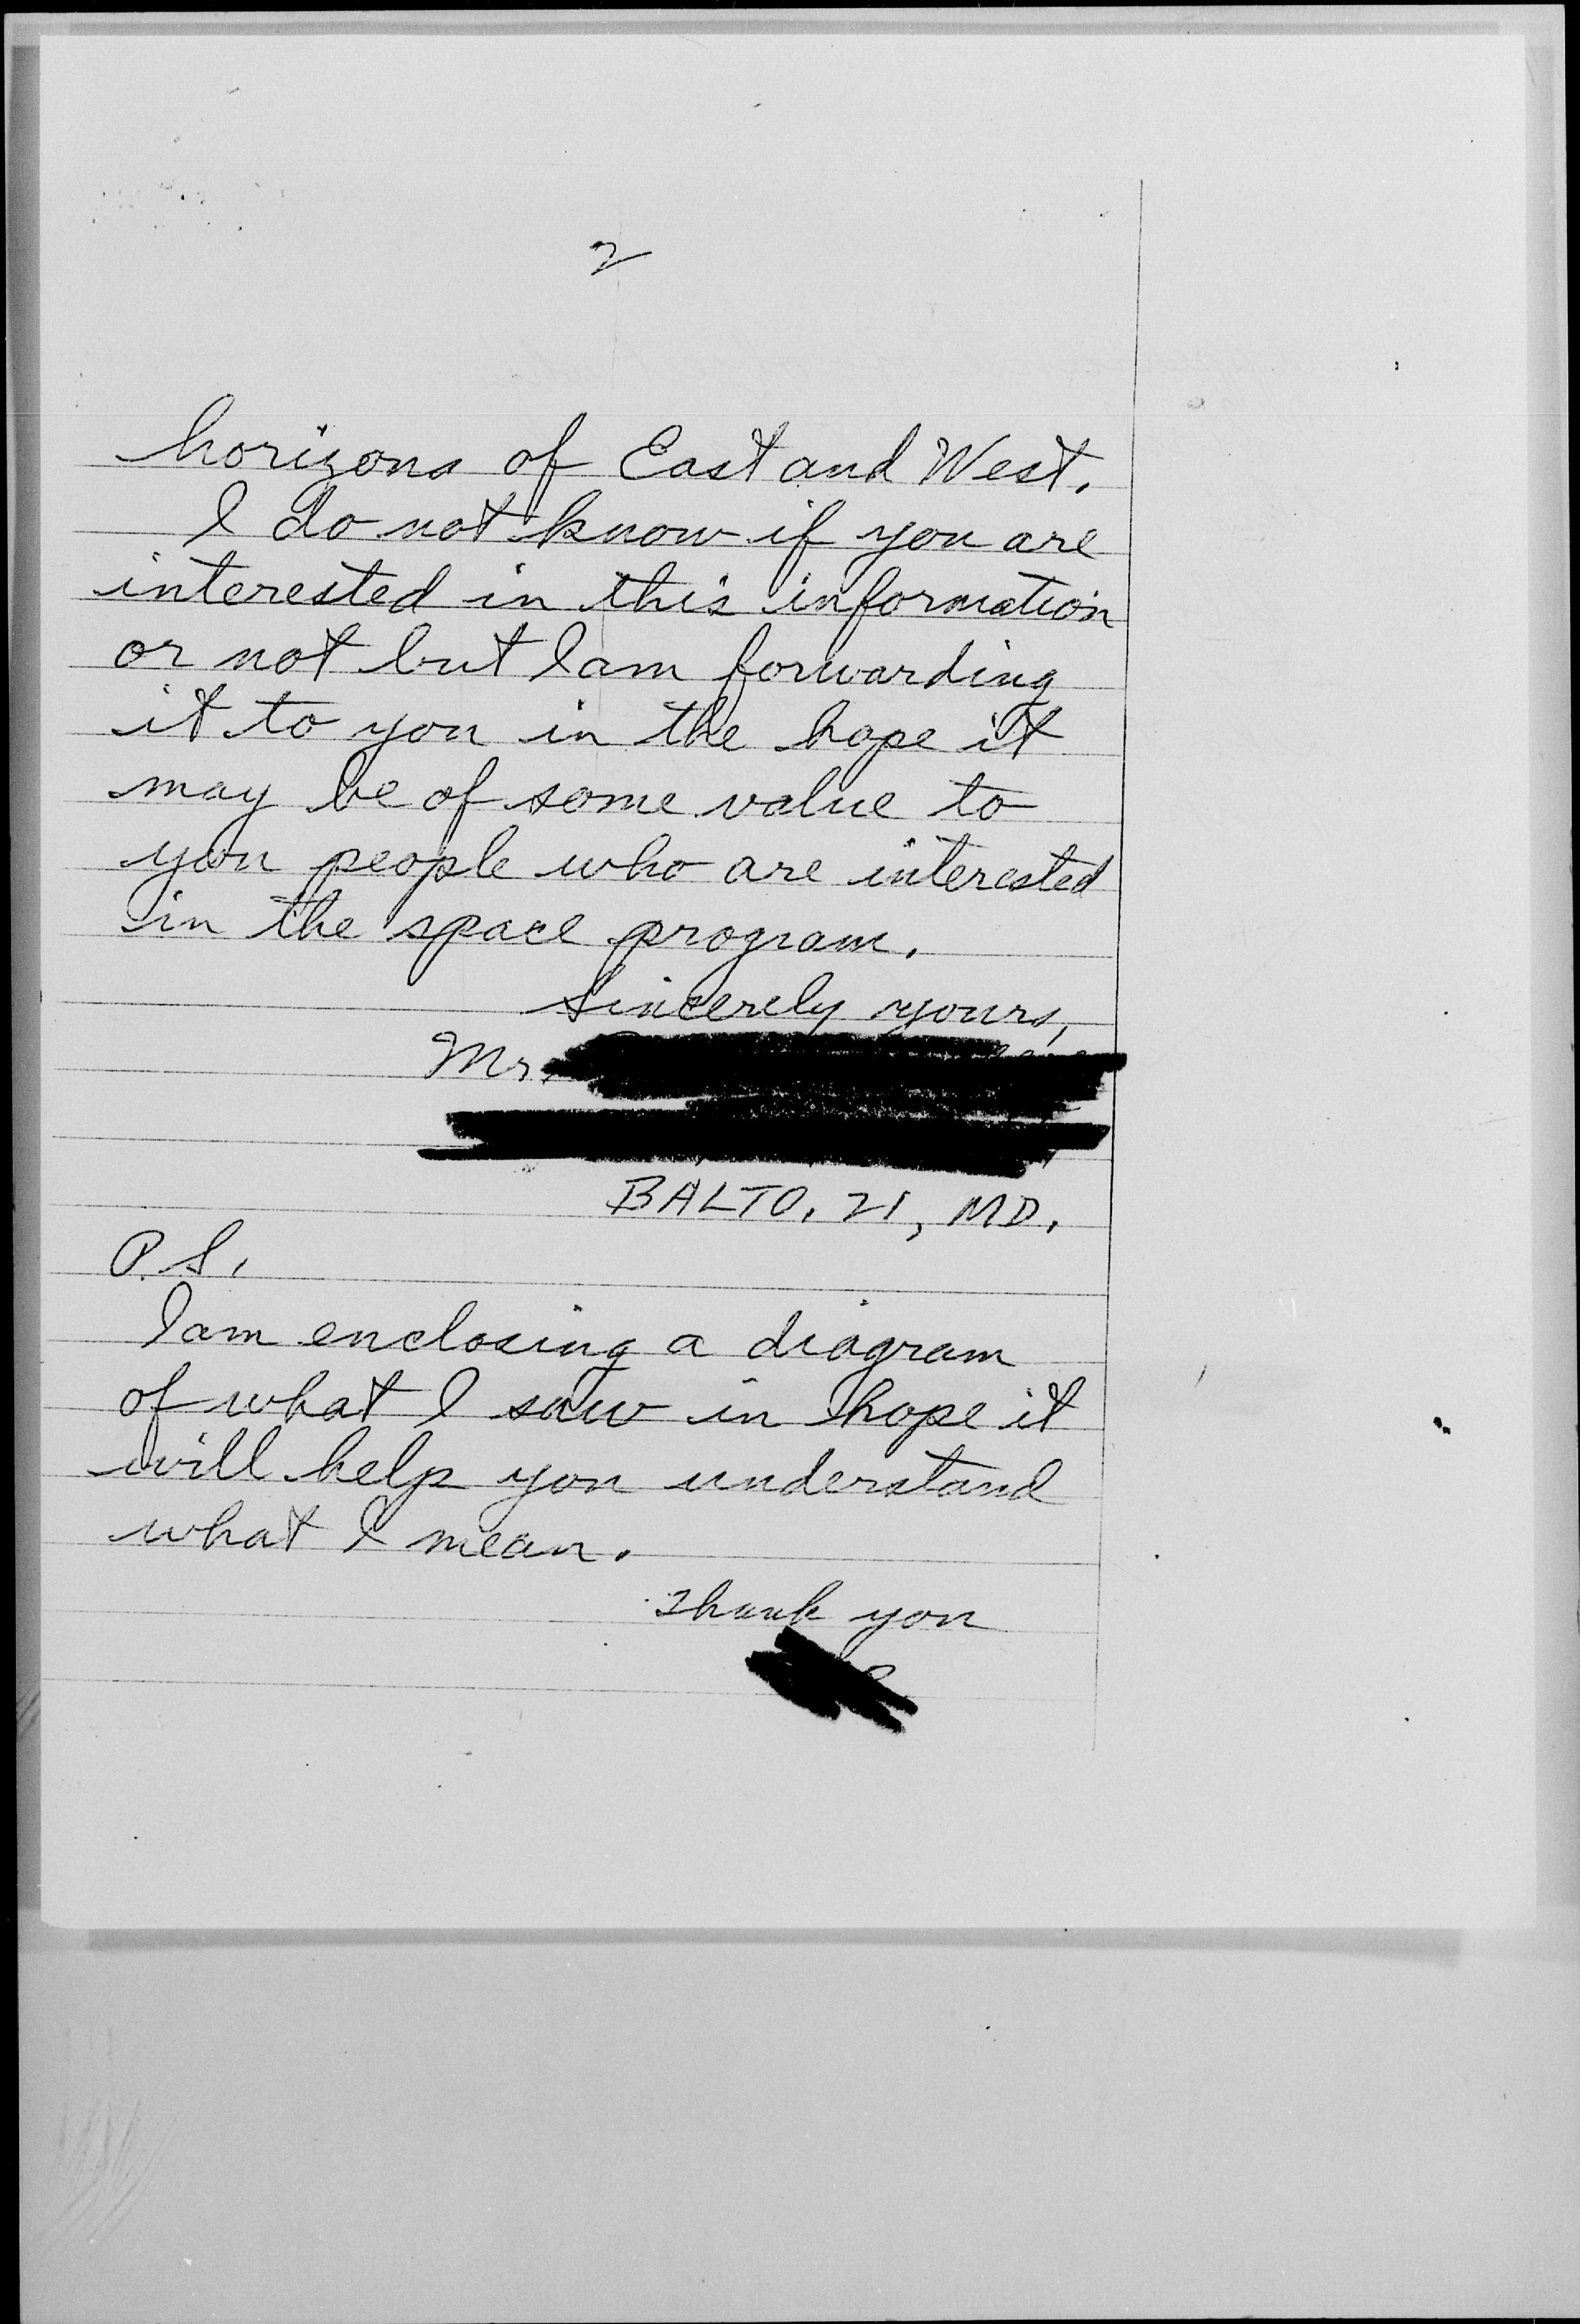 2
horizons of East and West.
I do not know if you are
interested in this information
or not but I am forwarding
it to you in the hope it
may be of some value to
you people who are interested
in the space program.
Sincerely yours,
Mr.
BALTO. 21, MD.
P.S.
I am enclosing a diagram
of what I saw in hope it
will help you understand
what I mean.
Thank you